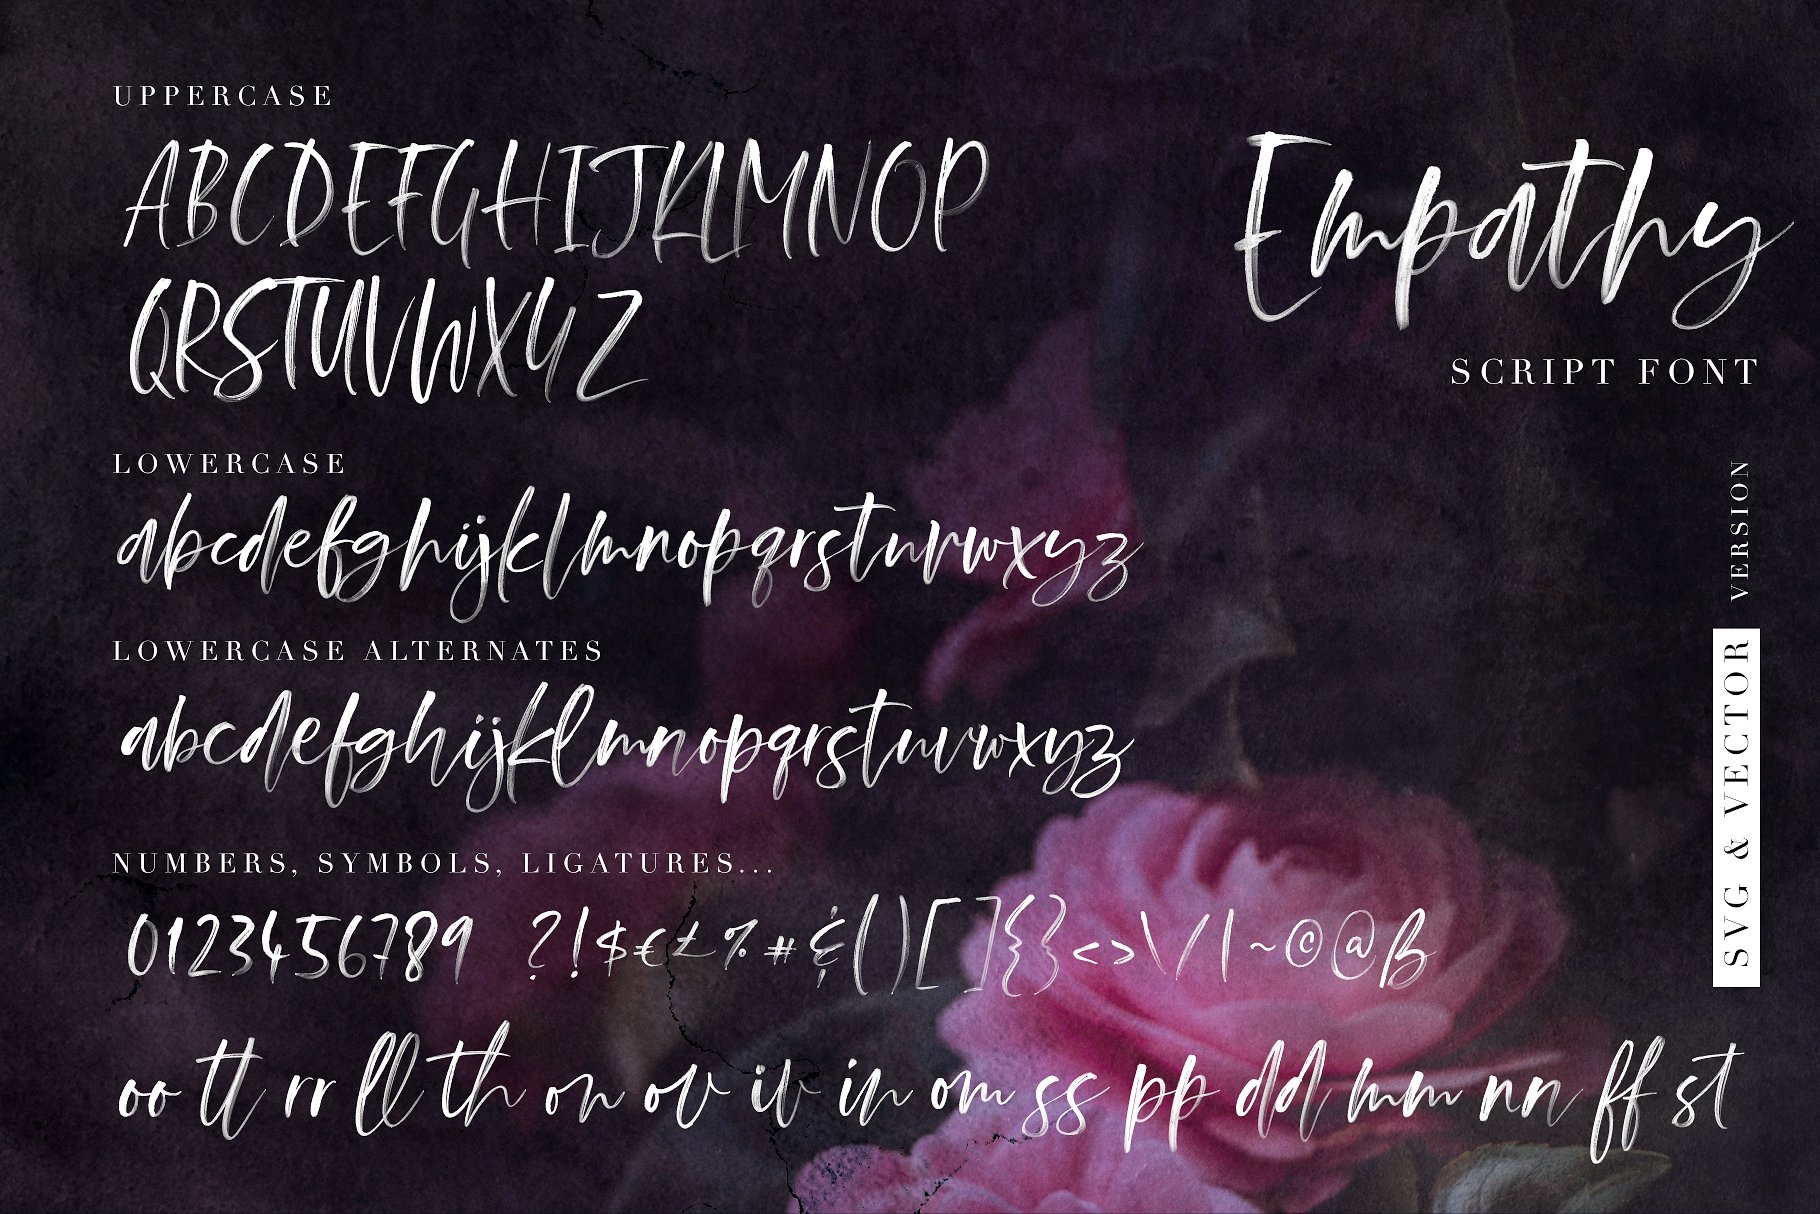 UPPERCASE
ABCDEFGHIJKLMNOP
QRSTUVWXYZ
Empathy
SCRIPT FONT
LOWERCASE
abcdefghijklmnopqrstuvwxyz
LOWERCASE ALTERNATES
abcdefghijklmnopqrstuvwxyz
NUMBERS, SYMBOLS, LIGATURES...
0123456789 ?!$€£%#&()[]{}<>\/|~©@ß
oo tt rr ll th on ov iv in om ss pp dd mm nn ff st
SVG & VECTOR VERSION